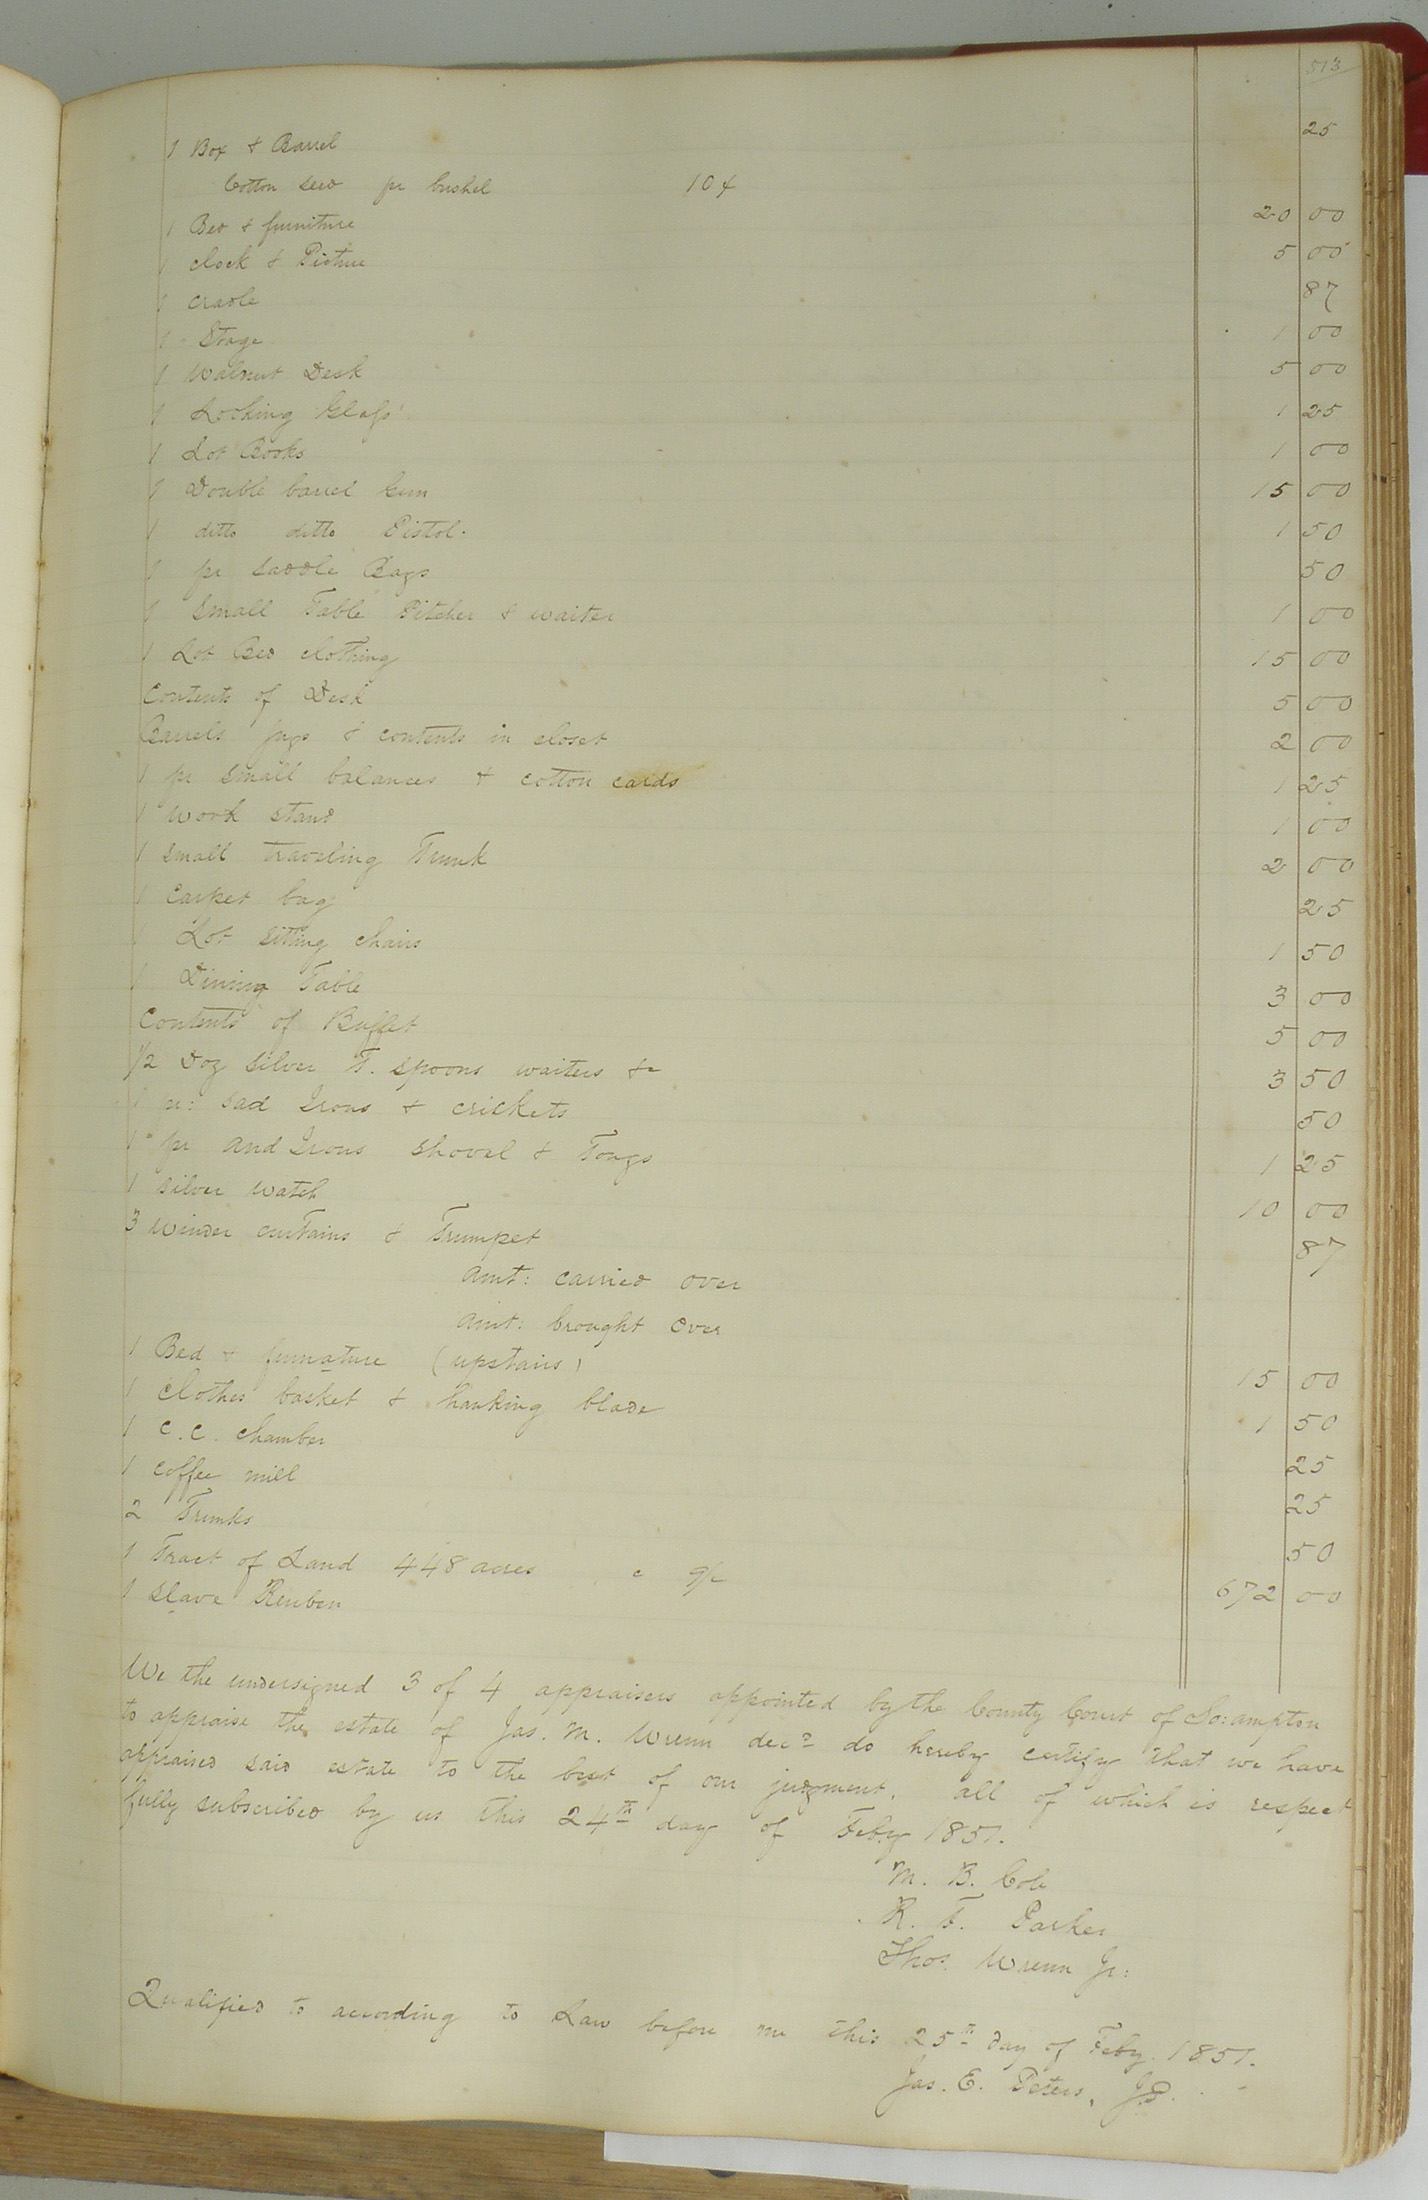 513
1 Box & Barrel 25
Cotton seed pr bushel 10¢
1 Bed & furniture 20 00
1 clock & Picture 5 00
1 cradle 87
1 Stage 1 00
1 Walnut Desk 5 00
1 Looking Glass 1 25
1 Lot Books 1 00
1 Double barrel Gun 15 00
1 ditto ditto Pistol. 1 50
1 pr saddle Bags 50
1 small Table Pitcher & waiter 1 00
1 Lot Bed clothing 15 00
Contents of Desk 5 00
Barrels jugs & contents in closet 2 00
1 pr small balances & cotton cards 1 25
1 work stand 1 00
1 small traveling Trunk 2 00
1 Carpet bag 25
1 Lot sitting chairs 1 50
1 Dining Table 3 00
Contents of Buffet 5 00
1/2 Doz silver T. spoons waiters &c 3 50
1 pr: sad Irons & crickets 50
1 pr and Irons shovel & Tongs 1 25
1 silver watch 10 00
3 Winder curtains & Trumpet 87
amt: carried over
amt: brought over
1 Bed & furnature (upstairs) 15 00
1 Clothes basket & hanking blade 1 50
1 C. C. chamber 25
1 coffee mill 25
2 Trunks 50
1 Tract of Land 448 acres 672 00
1 slave Reuben
We the undersigned 3 of 4 appraisers appointed by the County Court of So:ampton
to appraise the estate of Jas. M. Wrenn decd do hereby certify that we have
appraised said estate to the best of our judgment. all of which is respect
fully subscribed by us this 24th day of Feby 1851.
M. B. Cole
R. T. Parker
Thos. Wrenn Jr:
Qualified to according to Law before me this 25th day of Feby. 1851.
Jas. E. Peters, J.P.